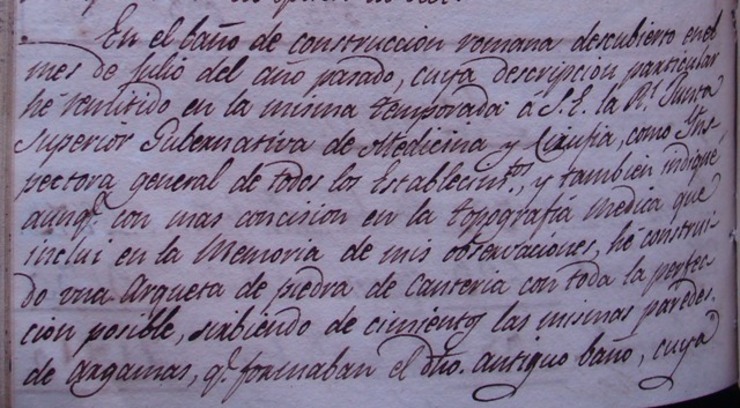 En el baño de construccion romana descubierto en el
mes de Julio del año pasado, cuya descripcion particular
hé remitido en la misma temporada á S.E. la Rl. Junta
Superior Gubernativa de Medicina y Cirujia, como Ins-
pectora general de todos los Establecimtos., y tambien indiqué
aunqe. con mas concision en la topografia medica que
inclui en la Memoria de mis observaciones, hé construi-
do una Arqueta de piedra de Canteria con toda la perfec-
cion posible, sirbiendo de cimientos las mismas paredes
de argamas, qe. formaban el dho. antiguo baño, cuya